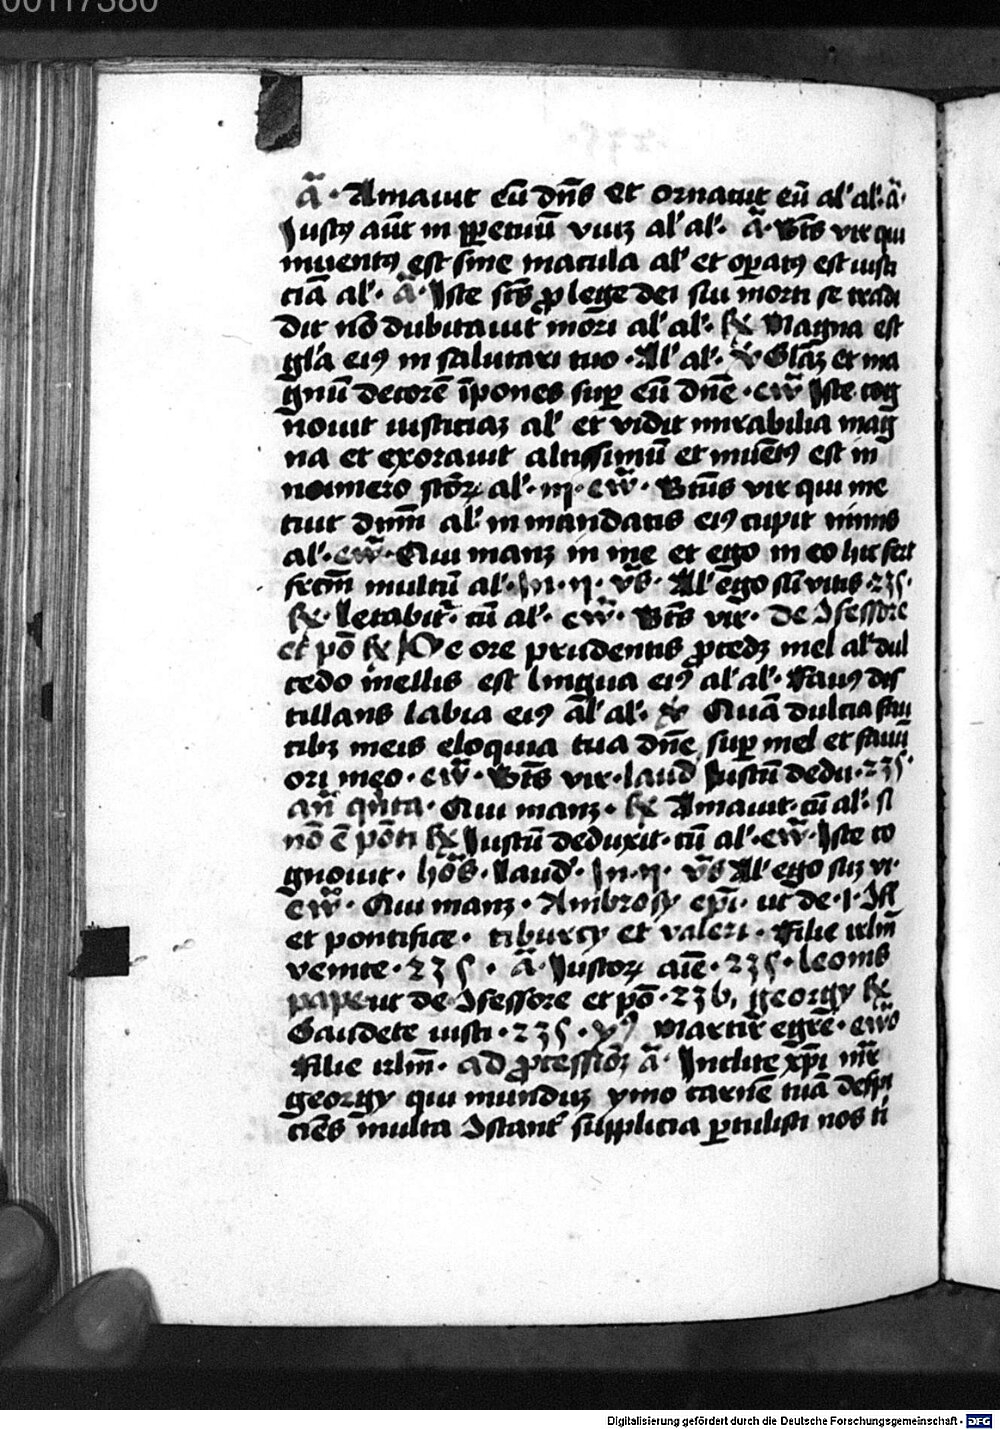 00117380
a̅ · Amauit eu̅ dn̅s et ornauit eu̅ al' al'· a̅·
Iustꝰ aut̅ in ꝑpetuu̅ viuꝫ al' al'· a̅· Bt̅s vir qui
inuentꝰ est sine macula al' et oꝑatꝰ est iusti
cia̅ al'· a̅· Iste sc̅s ꝓ lege dei sui morti se tradi
dit no̅ dubitauit mori al' al'· ℞ Magna est
gl'a eiꝰ in salutari tuo · Al' al'· ℣ Gl'aꝫ et ma
gnu̅ decore̅ i̅pones suꝑ eu̅ dn̅e · ew̅ Iste cog
nouit iusticiaꝫ al' et vidit mirabilia mag
na et exorauit altissimu̅ et inue̅tꝰ est in
noimero sc̅oꝝ al'· in · ew̅ · Bt̅us vir qui me
tuit dnm̅ al' in mandatis eiꝰ cupit nimis
al'· ew̅ · Qui manꝫ in me et ego in eo hic fert
fr̅ctm̅ multu̅ al'· In · ij · v̅s · Al' ego su̅ vitis · 235 ·
℞ · Letabit̅ · cu̅ al'· ew̅ · Bt̅s vir̅ · De ↄfessore
et po̅ ℞ De ore prudentis ꝓcedꝫ mel al' dul
cedo mellis est lingua eiꝰ al' al'· Fauꝰ dis
tillans labia eiꝰ al' al'· ℣ Qua̅ dulcia fau
cibꝫ meis eloquia tua dn̅e suꝑ mel et fauu̅
ori meo · ew̅ · Bt̅s vir · laud Iustu̅ dedu · 235 ·
an̅ qu̅ta · Qui manꝫ · ℞ Amauit · cu̅ al'· si
no̅ e̅ po̅ti ℞ Iustu̅ deduxit · cu̅ al'· ew̅ · Iste co
gnouit · ho̅s · Laud · In · ij · v̅s Al' ego suꝫ vi ·
ew̅ · Qui manꝫ · Ambrosy ep̅i · ut de · I · ↄff
et pontifice · tiburcy et valeri · Filie irlm̅
venite · 235 · a̅ Iustoꝝ ai̅e · 235 · leonis
pape ut de ↄfessore et po̅ · 236, georgy ℞
Gaudete iusti · 235 · ℣ Martir̅ egre̅ · ew̅
Filie irlm̅ · ad ꝓcessio̅ꝫ a̅ · Inclite xp̅i mr̅
georgy qui munduꝫ ymo carne̅ tua̅ despi
cie̅s multa ↄstant' supplicia ꝑtulisti nos ti
Digitalisierung gefördert durch die Deutsche Forschungsgemeinschaft · DFG